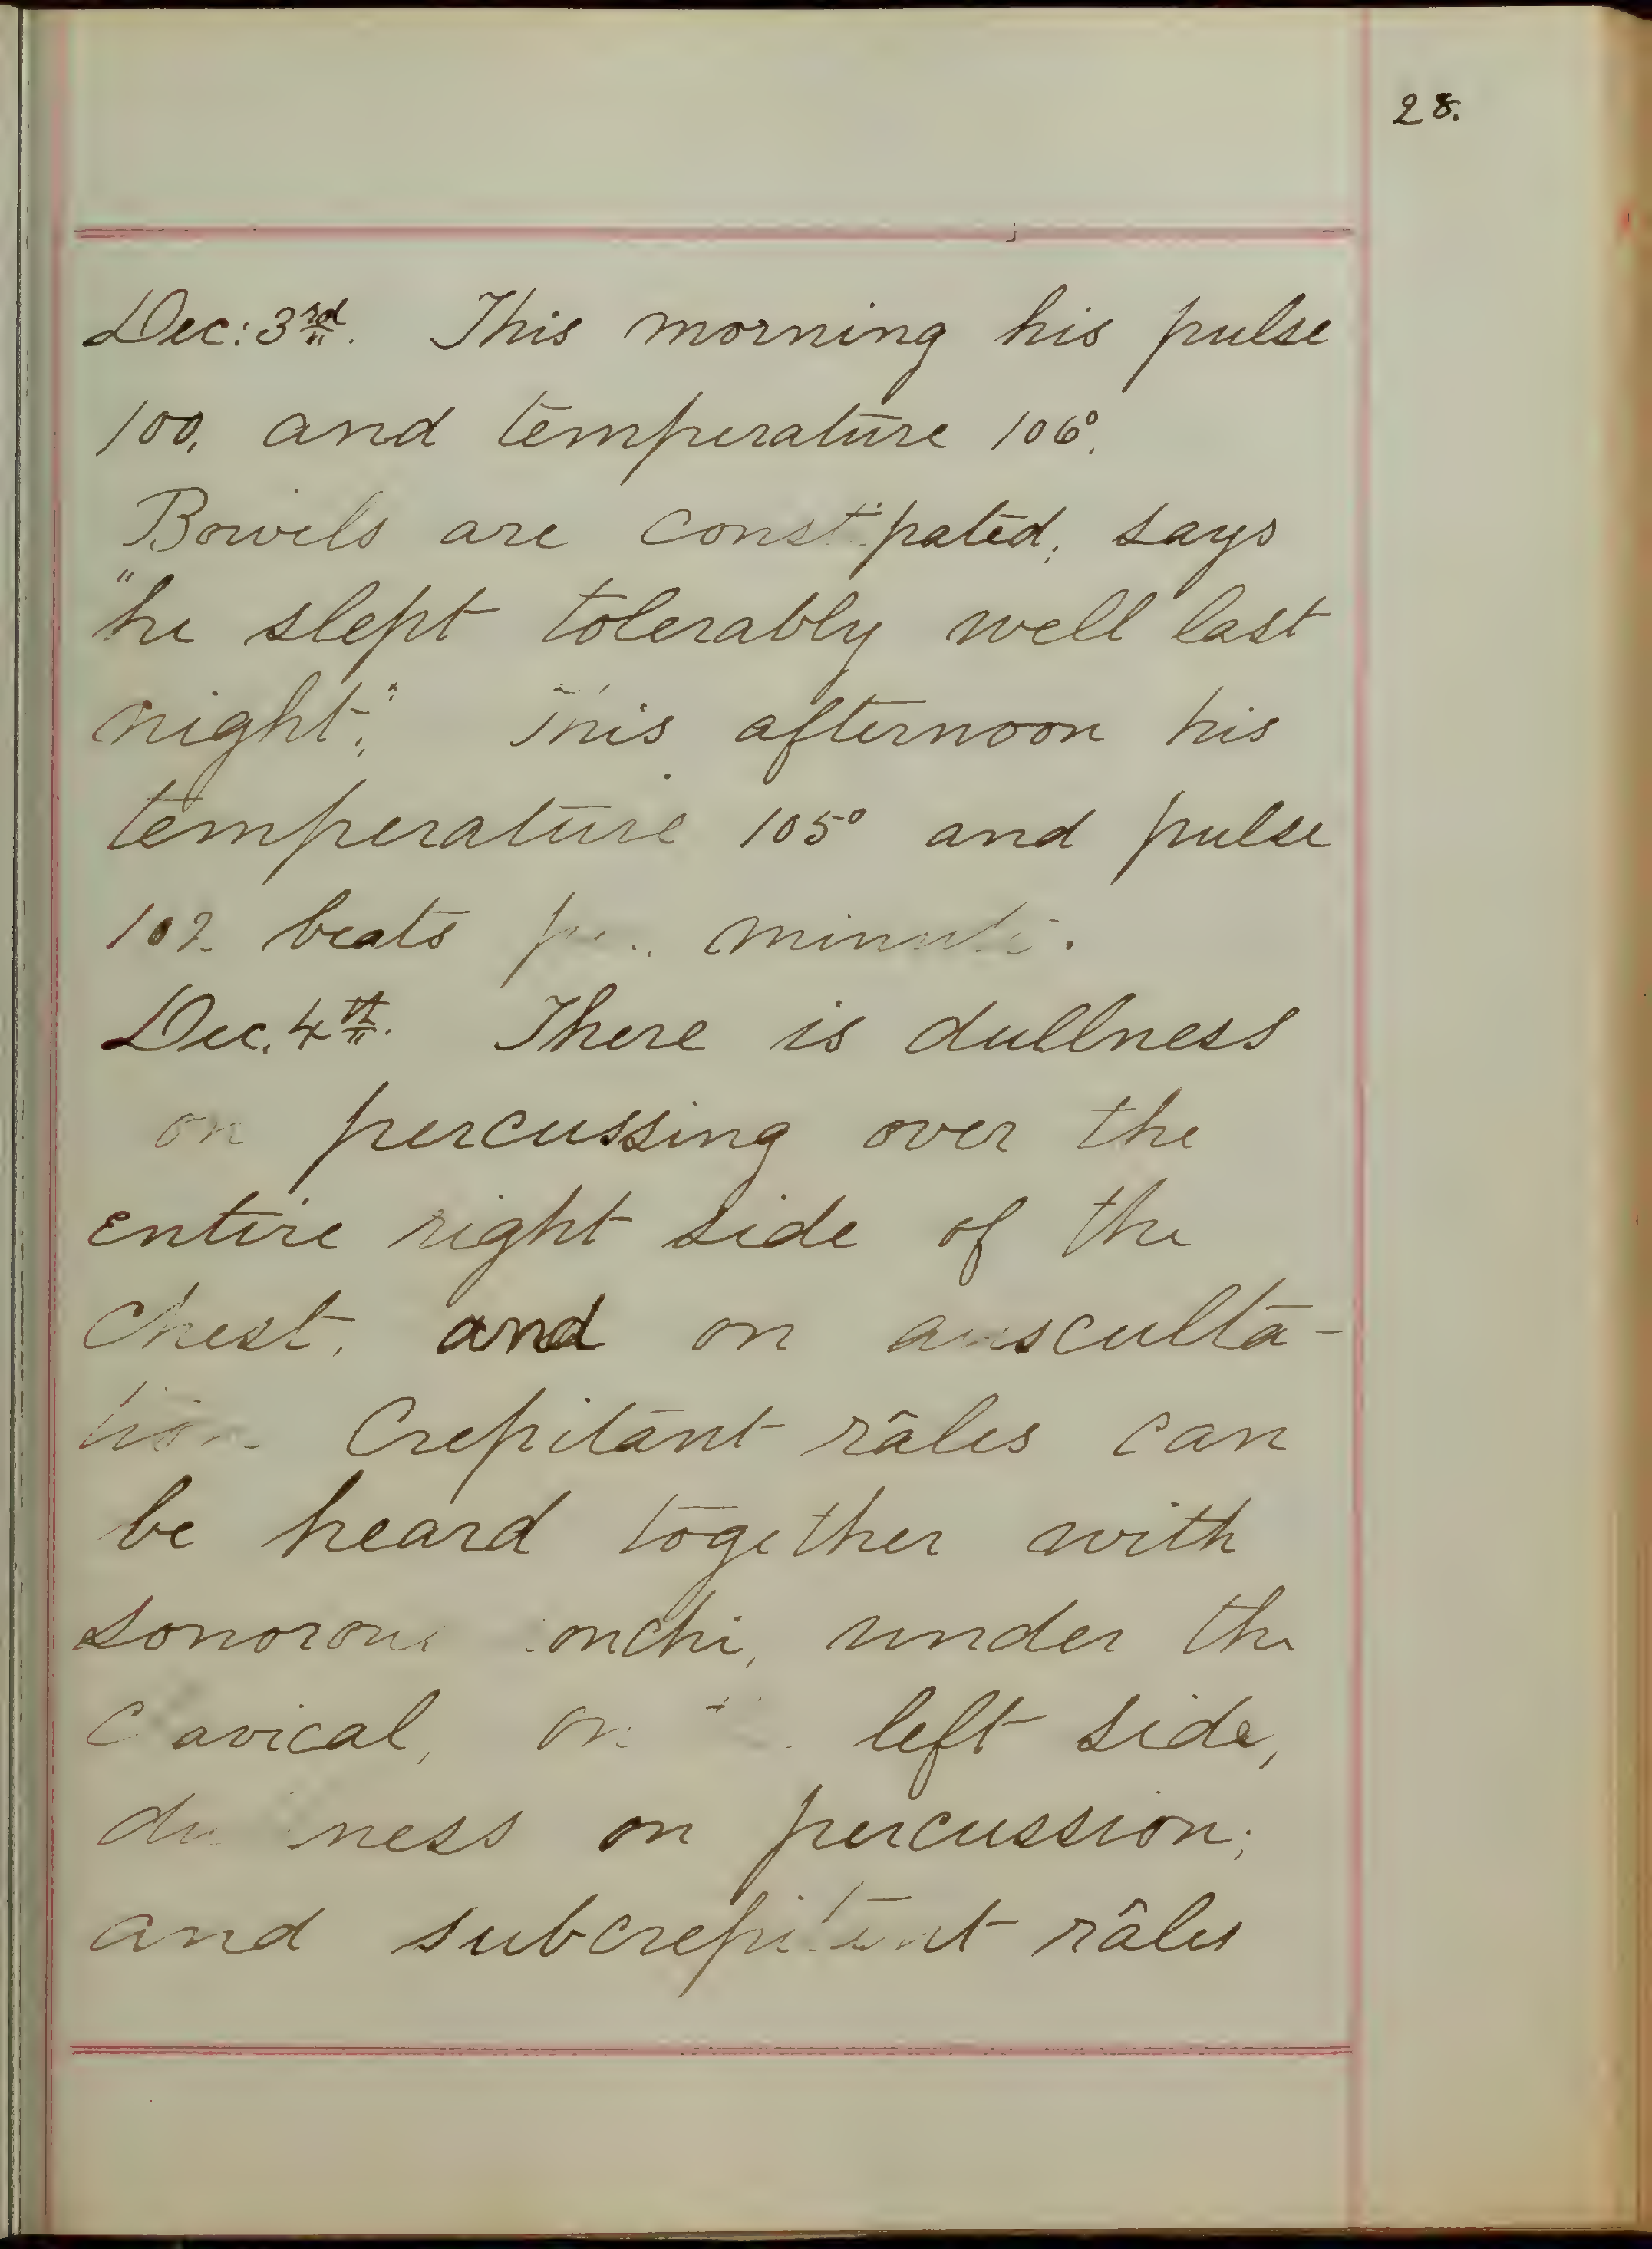 28.
Dec: 3rd. This morning his pulse
100, and temperature 106°.
Bowels are constipated; says
"he slept tolerably well last
night;" This afternoon his
temperature 105° and pulse
102 beats per minute.
Dec. 4th. There is dullness
on percussing over the
entire right side of the
Chest, and on ausculta-
tion Crepitant râles can
be heard together with
sonorous ronchi, under the
Clavical, on the left side,
dullness on percussion;
and subcrepitant râles